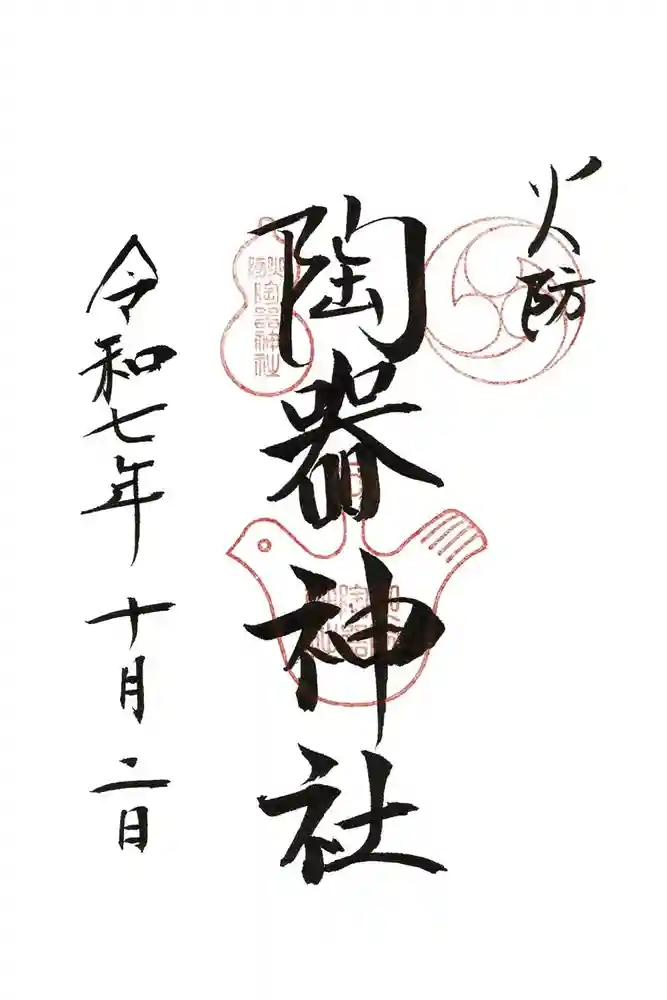 火防
陶器神社
火防
陶器神社
令和七年 十月 二日